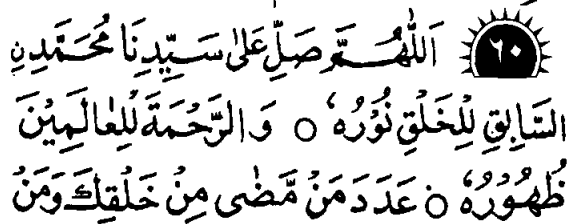 ٦٠ اَللّٰهُمَّ صَلِّ عَلٰى سَيِّدِنَا مُحَمَّدِنِ
السَّابِقِ لِلْخَلْقِ نُوْرُهٗ ○ وَالرَّحْمَةَ لِلْعٰالَمِيْنَ
ظُهُوْرُهٗ ○ عَدَدَ مَنْ مَّضٰى مِنْ خَلْقِكَ وَمَنْ